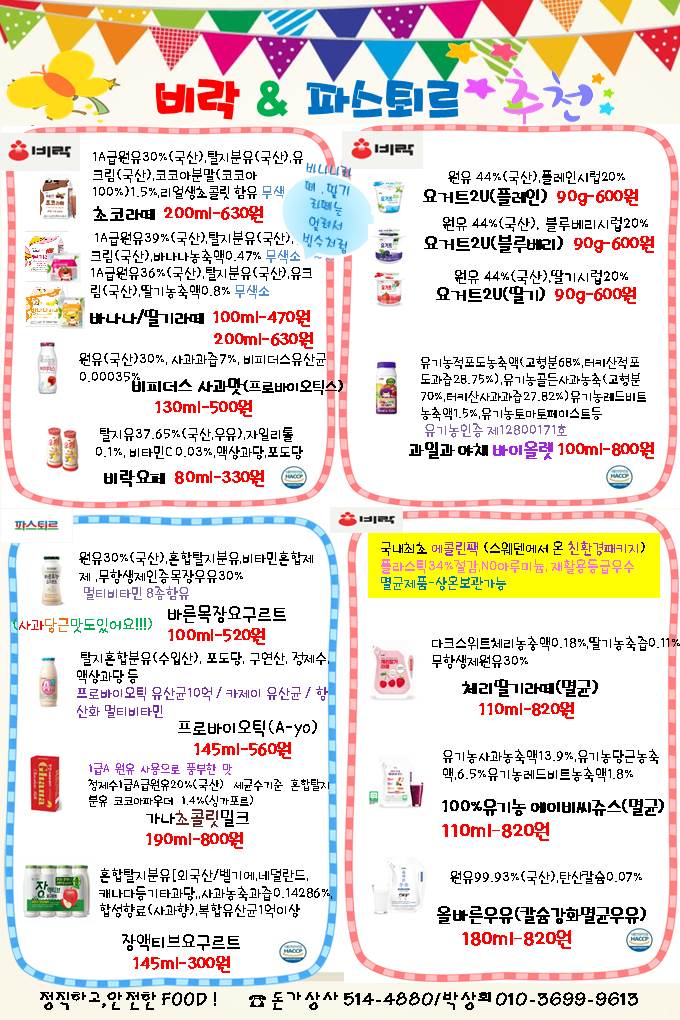 비락 & 파스퇴르 추천
비락
1A급원유30%(국산),탈지분유(국산),유
크림(국산),코코아분말(코코아
100%)1.5%,리얼생초콜릿 함유 무색소
초코라떼 200ml-630원
바나나라
떼,딸기
라떼는
얼려서
빙수처럼
~
1A급원유39%(국산),탈지분유(국산),
크림(국산),바나나농축액0.47% 무색소
1A급원유36%(국산),탈지분유(국산),유크
림(국산),딸기농축액0.8% 무색소
바나나/딸기라떼 100ml-470원
200ml-630원
원유(국산)30%, 사과과즙7%, 비피더스유산균
0.00035%
비피더스 사과맛(프로바이오틱스)
130ml-500원
탈지유37.65%(국산,우유),자일리톨
0.1%, 비타민C 0.03%,액상과당,포도당
비락요페 80ml-330원
HACCP
비락
원유 44%(국산),플레인시럽20%
요거트2U(플레인) 90g-600원
원유 44%(국산), 블루베리시럽20%
요거트2U(블루베리) 90g-600원
원유 44%(국산),딸기시럽20%
요거트2U(딸기) 90g-600원
유기농적포도농축액(고형분68%,터키산적포
도과즙28.75%),유기농골든사과농축(고형분
70%,터키산사과과즙27.82%)유기농레드비트
농축액1.5%,유기농토마토페이스트등
유기농인증 제12800171호
과일과 야채 바이올렛 100ml-800원
HACCP
파스퇴르
원유30%(국산),혼합탈지분유,비타민혼합제
제 ,무항생제인증목장우유30%
멀티비타민 8종함유
바른목장요구르트
(사과당근맛도있어요!!!)
100ml-520원
탈지혼합분유(수입산), 포도당, 구연산, 정제수,
액상과당 등
프로바이오틱 유산균10억 / 카제이 유산균 / 항
산화 멀티비타민
프로바이오틱(A-yo)
145ml-560원
1급A 원유 사용으로 풍부한 맛
정제수1급A급원유20%(국산) 세균수기준 혼합탈지
분유 코코아파우더 1.4%(싱가포르)
Ghana
가나초콜릿밀크
190ml-800원
혼합탈지분유[외국산/벨기에,네덜란드,
캐나다등기타과당,,사과농축과즙0.14286%,
합성향료(사과향),복합유산균1억이상
장액티브요구르트
145ml-300원
HACCP
비락
국내최초 에콜린팩 (스웨덴에서 온 친환경패키지)
플라스틱34%절감,NO아루미늄, 재활용등급우수
멸균제품-상온보관가능
다크스위트체리농축액0.18%,딸기농축즙0.11%
무항생제원유30%
체리딸기라떼(멸균)
110ml-820원
유기농사과농축액13.9%,유기농당근농축
액,6.5%유기농레드비트농축액1.8%
100%유기농 에이비씨쥬스(멸균)
110ml-820원
원유99.93%(국산),탄산칼슘0.07%
올바른우유(칼슘강화멸균우유)
180ml-820원
HACCP
정직하고,안전한 FOOD ! ☎ 돈가상사 514-4880/박상희 010-3699-9613